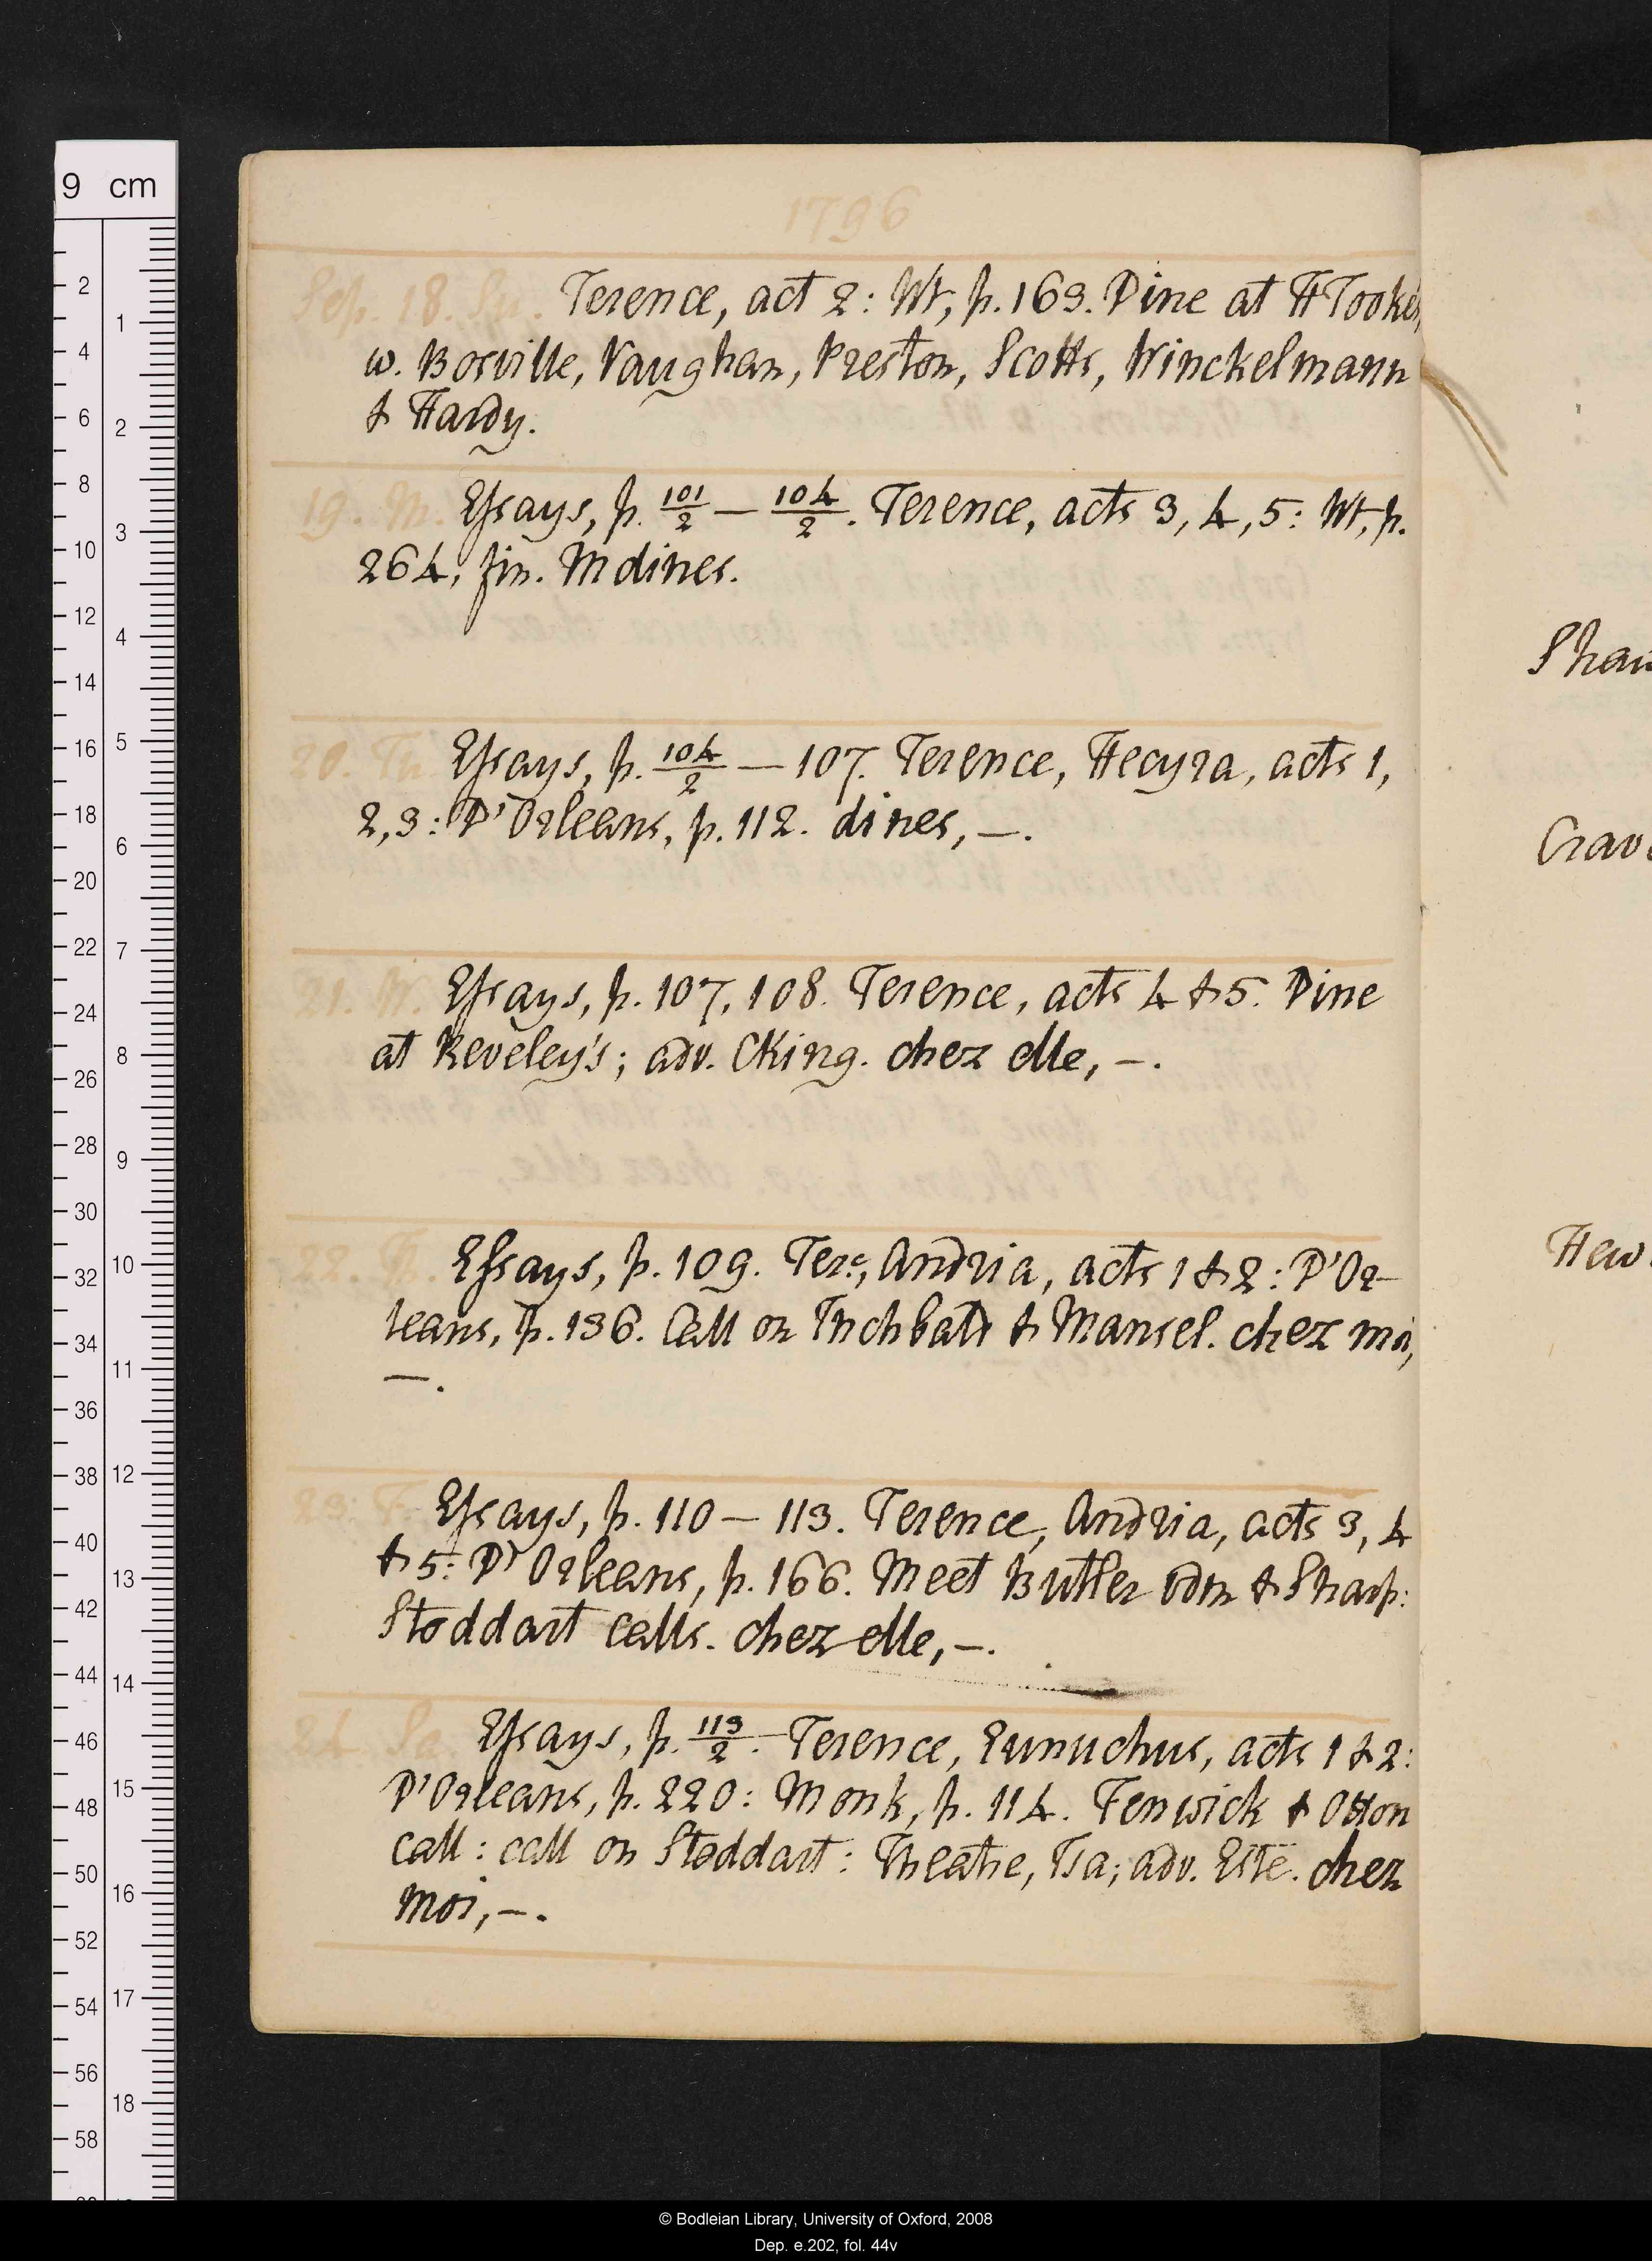 1796
Sep. 18. Su. Terence, act 2: Wt, p. 163. Dine at HTooke's,
w. Bosville, Vaughan, Preston, Scotts, Winckelmann
& Hardy.
19. M. Essays, p. 101/2 — 104/2. Terence, acts 3, 4, 5: Wt, p.
264, fin. M dines.
20. Tu. Essays, p. 104/2 — 107. Terence, Hecyra, acts 1,
2, 3: D'Orleans, p. 112. dines, —.
21. W. Essays, p. 107, 108. Terence, acts 4 & 5. Dine
at Reveley's; adv. CKing. chez elle, —.
22. Th. Essays, p. 109. Ter:ce, Andria, acts 1 & 2: D'Or-
leans, p. 136. Call on Inchbald & Mansel. chez moi,
—.
23. F. Essays, p. 110 — 113. Terence, Andria, acts 3, 4
& 5: D'Orleans, p. 166. Meet Butler & Sharp:
Stoddart calls. chez elle, —.
24. Sa. Essays, p. 113/2. Terence, Eunuchus, acts 1 & 2:
D'Orleans, p. 220: Monk, p. 114. Fenwick &
call: call on Stoddart: Theatre, Isa; adv. Este. chez
moi, —.
Shaw
Crav
Hew
9 cm
2 4 6 8 10 12 14 16 18 20 22 24 26 28 30 32 34 36 38 40 42 44 46 48 50 52 54 56 58
1 2 3 4 5 6 7 8 9 10 11 12 13 14 15 16 17 18
© Bodleian Library, University of Oxford, 2008
Dep. e.202, fol. 44v